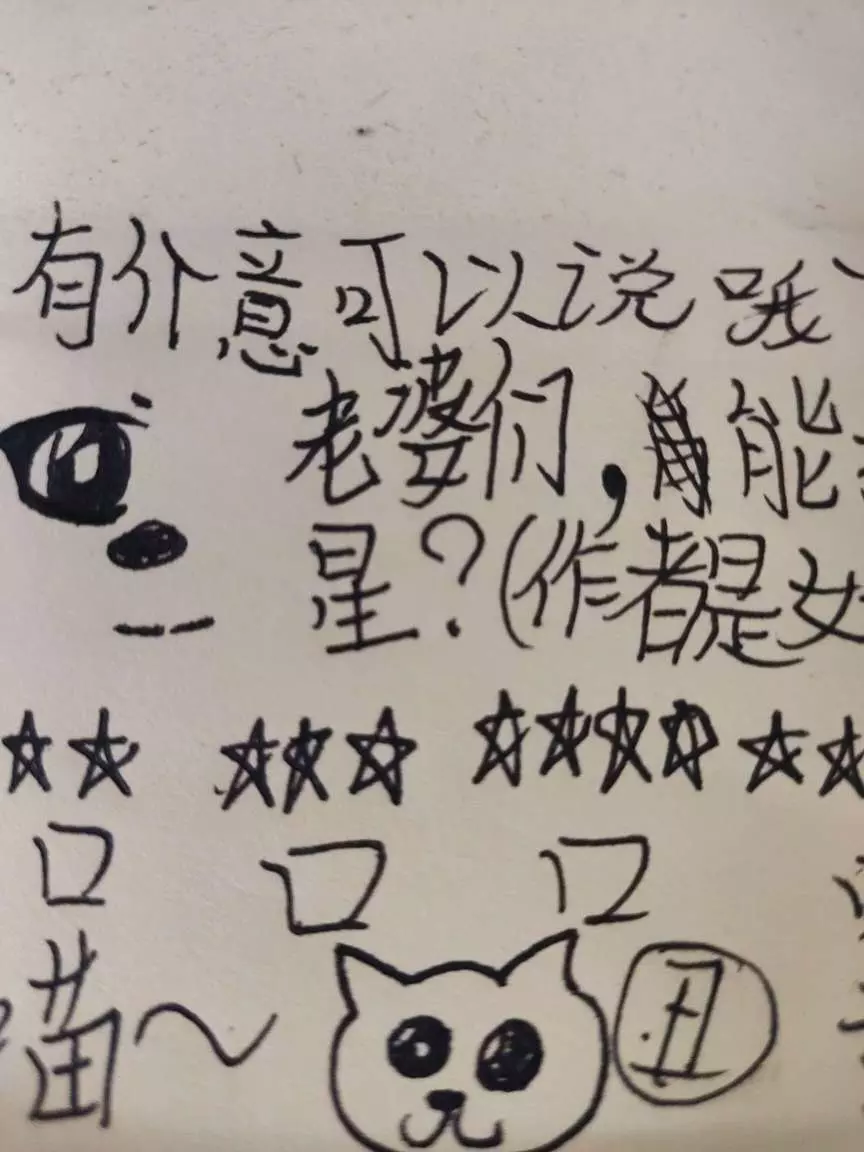 有介意可以说哦
老婆们,能
星?(作者是女
☆☆ ☆☆☆ ☆☆☆☆ ☆☆
口 口 口
喵~ 丑